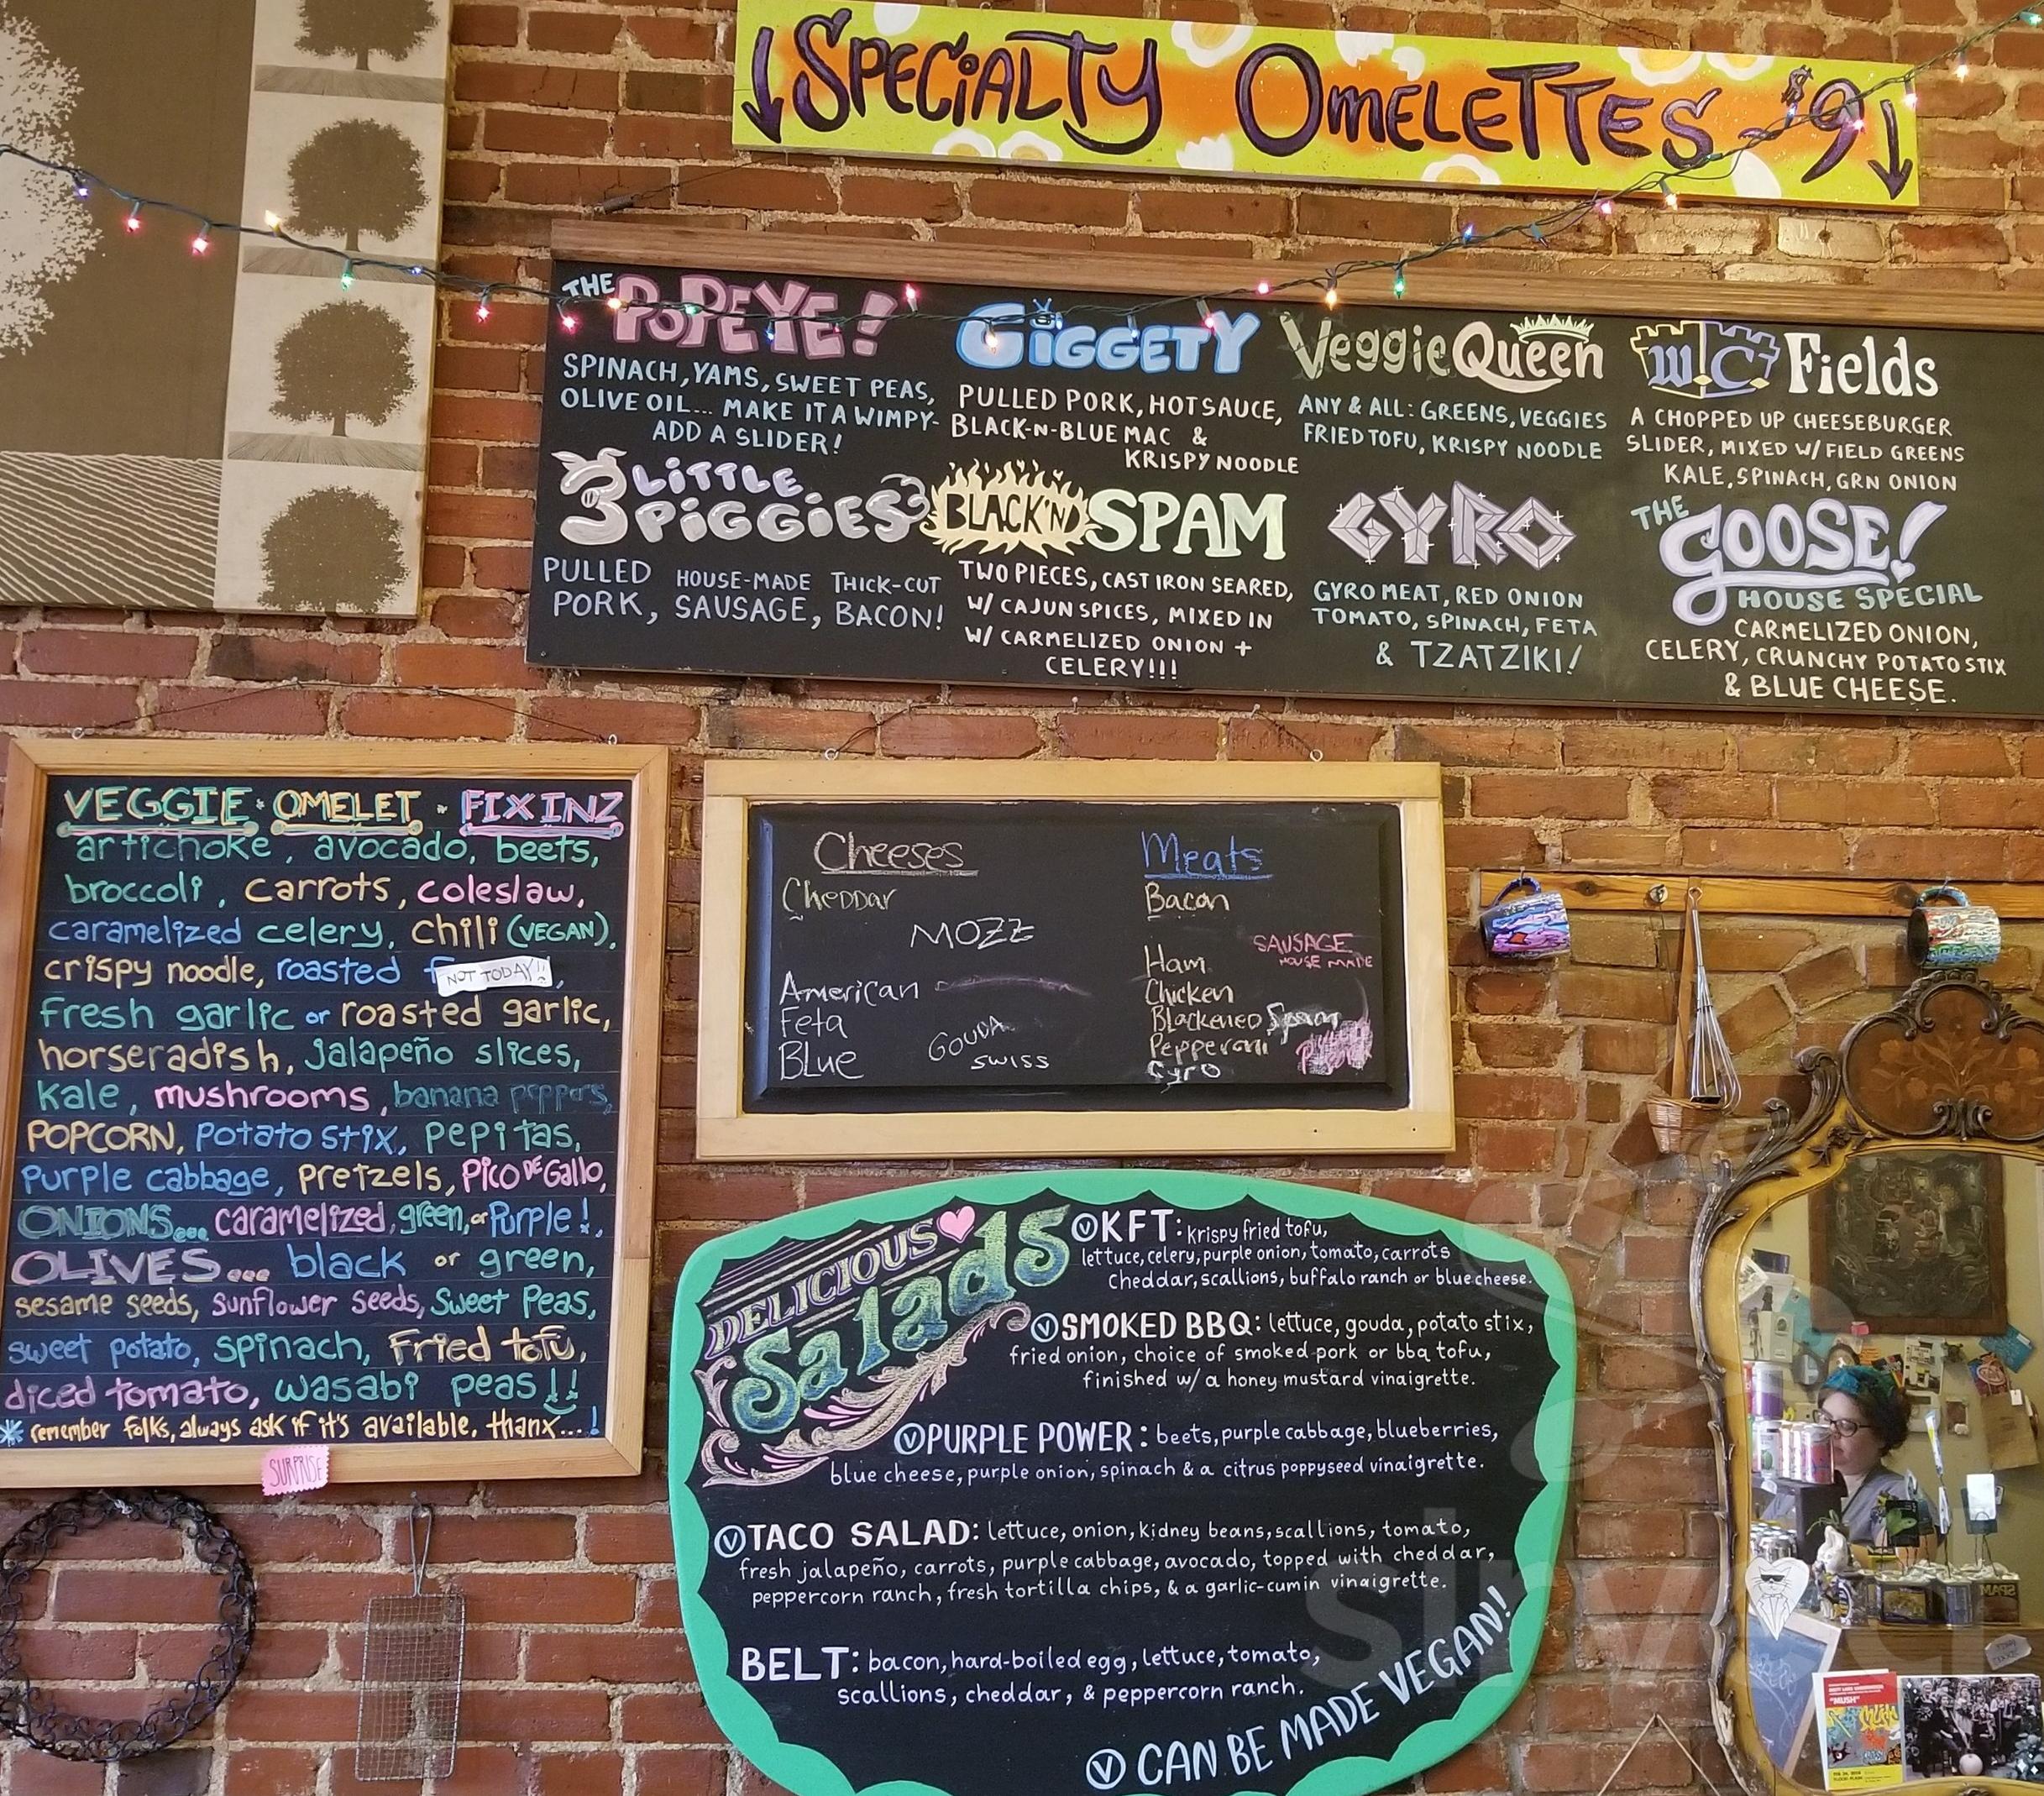 ↓ SPECIALTY OMELETTES - $9 ↓
THE POPEYE!
SPINACH, YAMS, SWEET PEAS,
OLIVE OIL... MAKE IT A WIMPY-
ADD A SLIDER!
GIGGETY
PULLED PORK, HOT SAUCE,
BLACK-N-BLUE MAC &
KRISPY NOODLE
Veggie Queen
ANY & ALL: GREENS, VEGGIES
FRIED TOFU, KRISPY NOODLE
W.C. Fields
A CHOPPED UP CHEESEBURGER
SLIDER, MIXED W/ FIELD GREENS
KALE, SPINACH, GRN ONION
3 LITTLE
PIGGIES
PULLED HOUSE-MADE THICK-CUT
PORK, SAUSAGE, BACON!
BLACK'ND SPAM
TWO PIECES, CAST IRON SEARED,
W/ CAJUN SPICES, MIXED IN
W/ CARMELIZED ONION +
CELERY!!!
GYRO
GYRO MEAT, RED ONION
TOMATO, SPINACH, FETA
& TZATZIKI!
THE GOOSE!
HOUSE SPECIAL
CARMELIZED ONION,
CELERY, CRUNCHY POTATO STIX
& BLUE CHEESE.
VEGGIE · OMELET · FIXINZ
artichoke, avocado, beets,
broccoli, carrots, coleslaw,
caramelized celery, chili (VEGAN),
crispy noodle, roasted NOT TODAY!!,
fresh garlic or roasted garlic,
horseradish, jalapeño slices,
kale, mushrooms, banana peppers,
POPCORN, potato stix, pepitas,
purple cabbage, pretzels, PICO DE GALLO,
ONIONS... caramelized, green, or Purple!,
OLIVES... black or green,
sesame seeds, sunflower seeds, Sweet Peas,
sweet potato, spinach, Fried tofu,
diced tomato, wasabi peas!!
* remember folks, always ask if it's available, thanx...!
SURPRISE
Cheeses
Cheddar
MOZZ
American
Feta
GOUDA
Blue
SWISS
Meats
Bacon
SAUSAGE
HOUSE MADE
Ham
Chicken
Blackened Spam
Pepperoni
Gyro
DELICIOUS
Salads
Ⓥ KFT: krispy fried tofu,
lettuce, celery, purple onion, tomato, carrots
Cheddar, scallions, buffalo ranch or blue cheese.
Ⓥ SMOKED BBQ: lettuce, gouda, potato stix,
fried onion, choice of smoked pork or bbq tofu,
finished w/ a honey mustard vinaigrette.
Ⓥ PURPLE POWER: beets, purple cabbage, blueberries,
blue cheese, purple onion, spinach & a citrus poppyseed vinaigrette.
Ⓥ TACO SALAD: lettuce, onion, kidney beans, scallions, tomato,
fresh jalapeño, carrots, purple cabbage, avocado, topped with cheddar,
peppercorn ranch, fresh tortilla chips, & a garlic-cumin vinaigrette.
BELT: bacon, hard-boiled egg, lettuce, tomato,
scallions, cheddar, & peppercorn ranch.
Ⓥ CAN BE MADE VEGAN!
"MUSH"
sirved